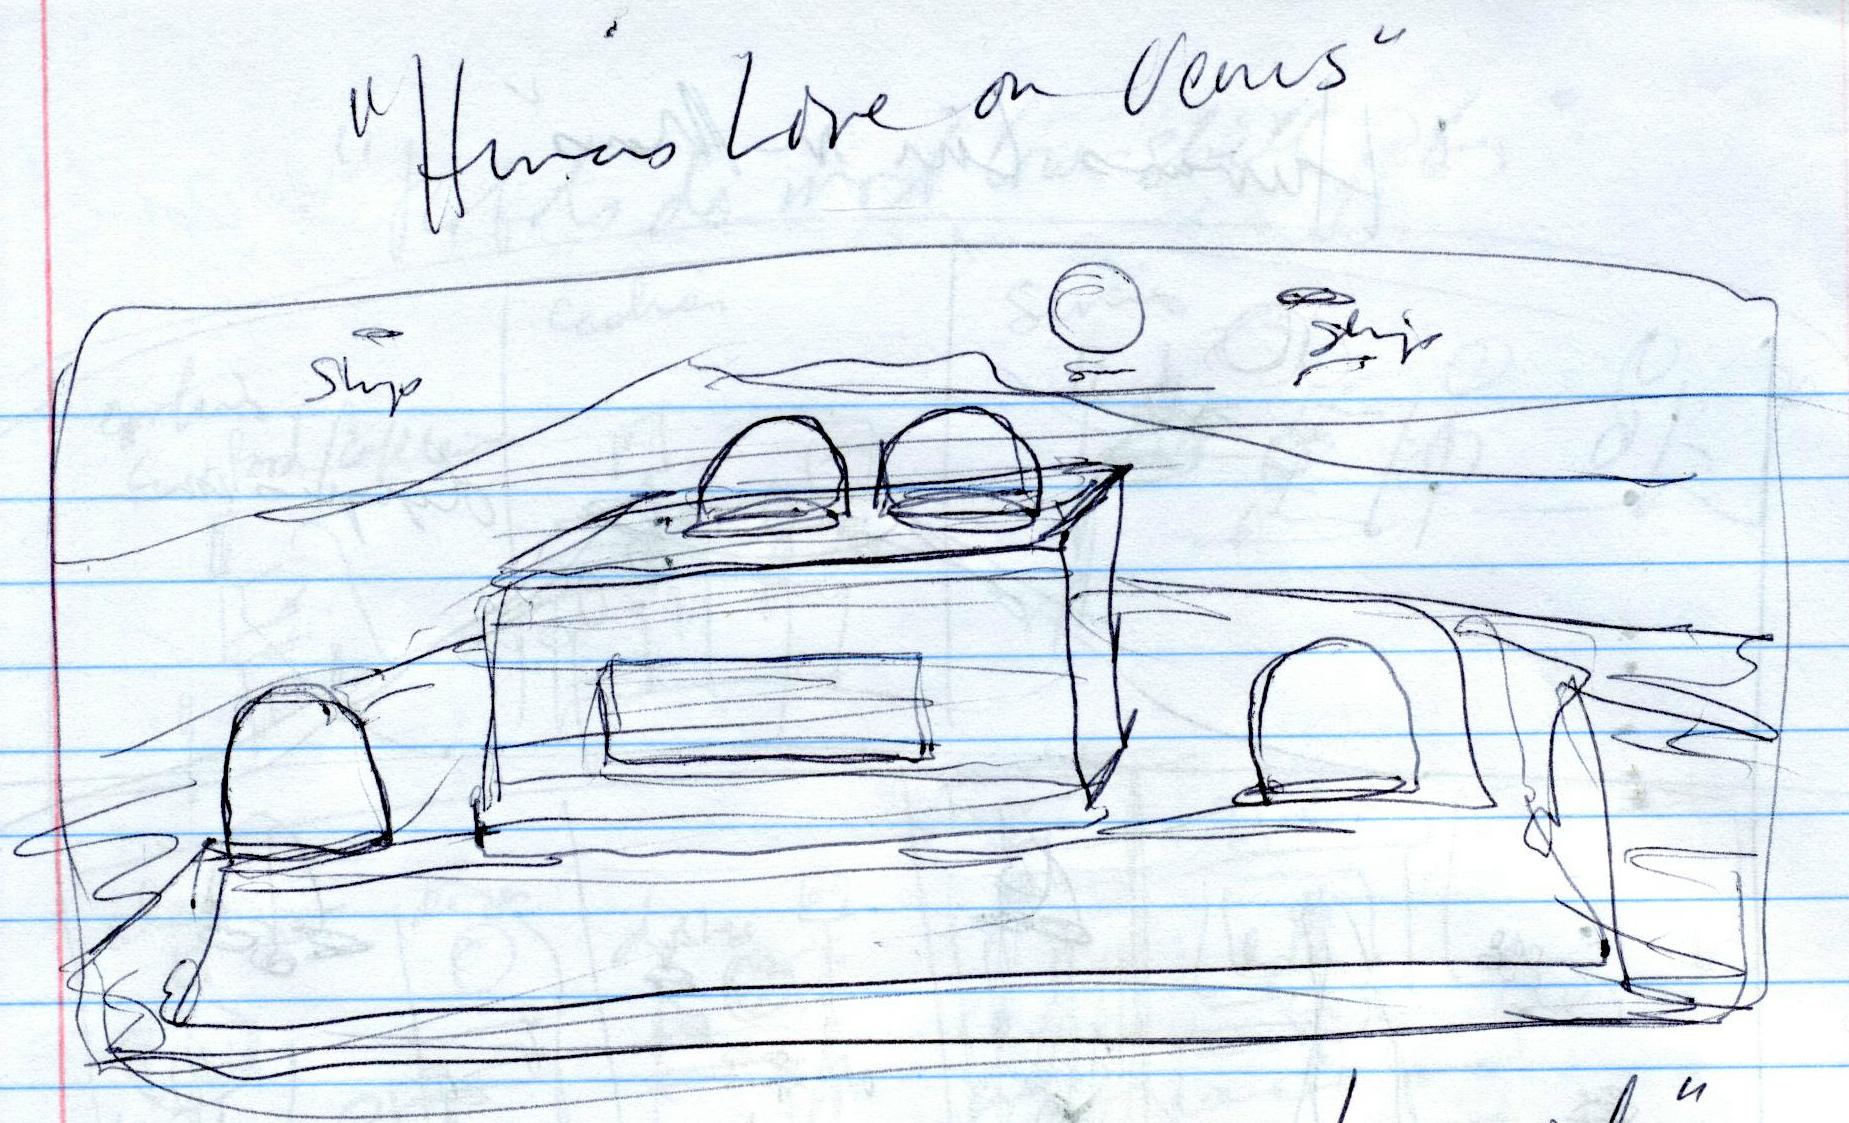 "Humans Live on Venus"
Ship
Sun
Ship
"